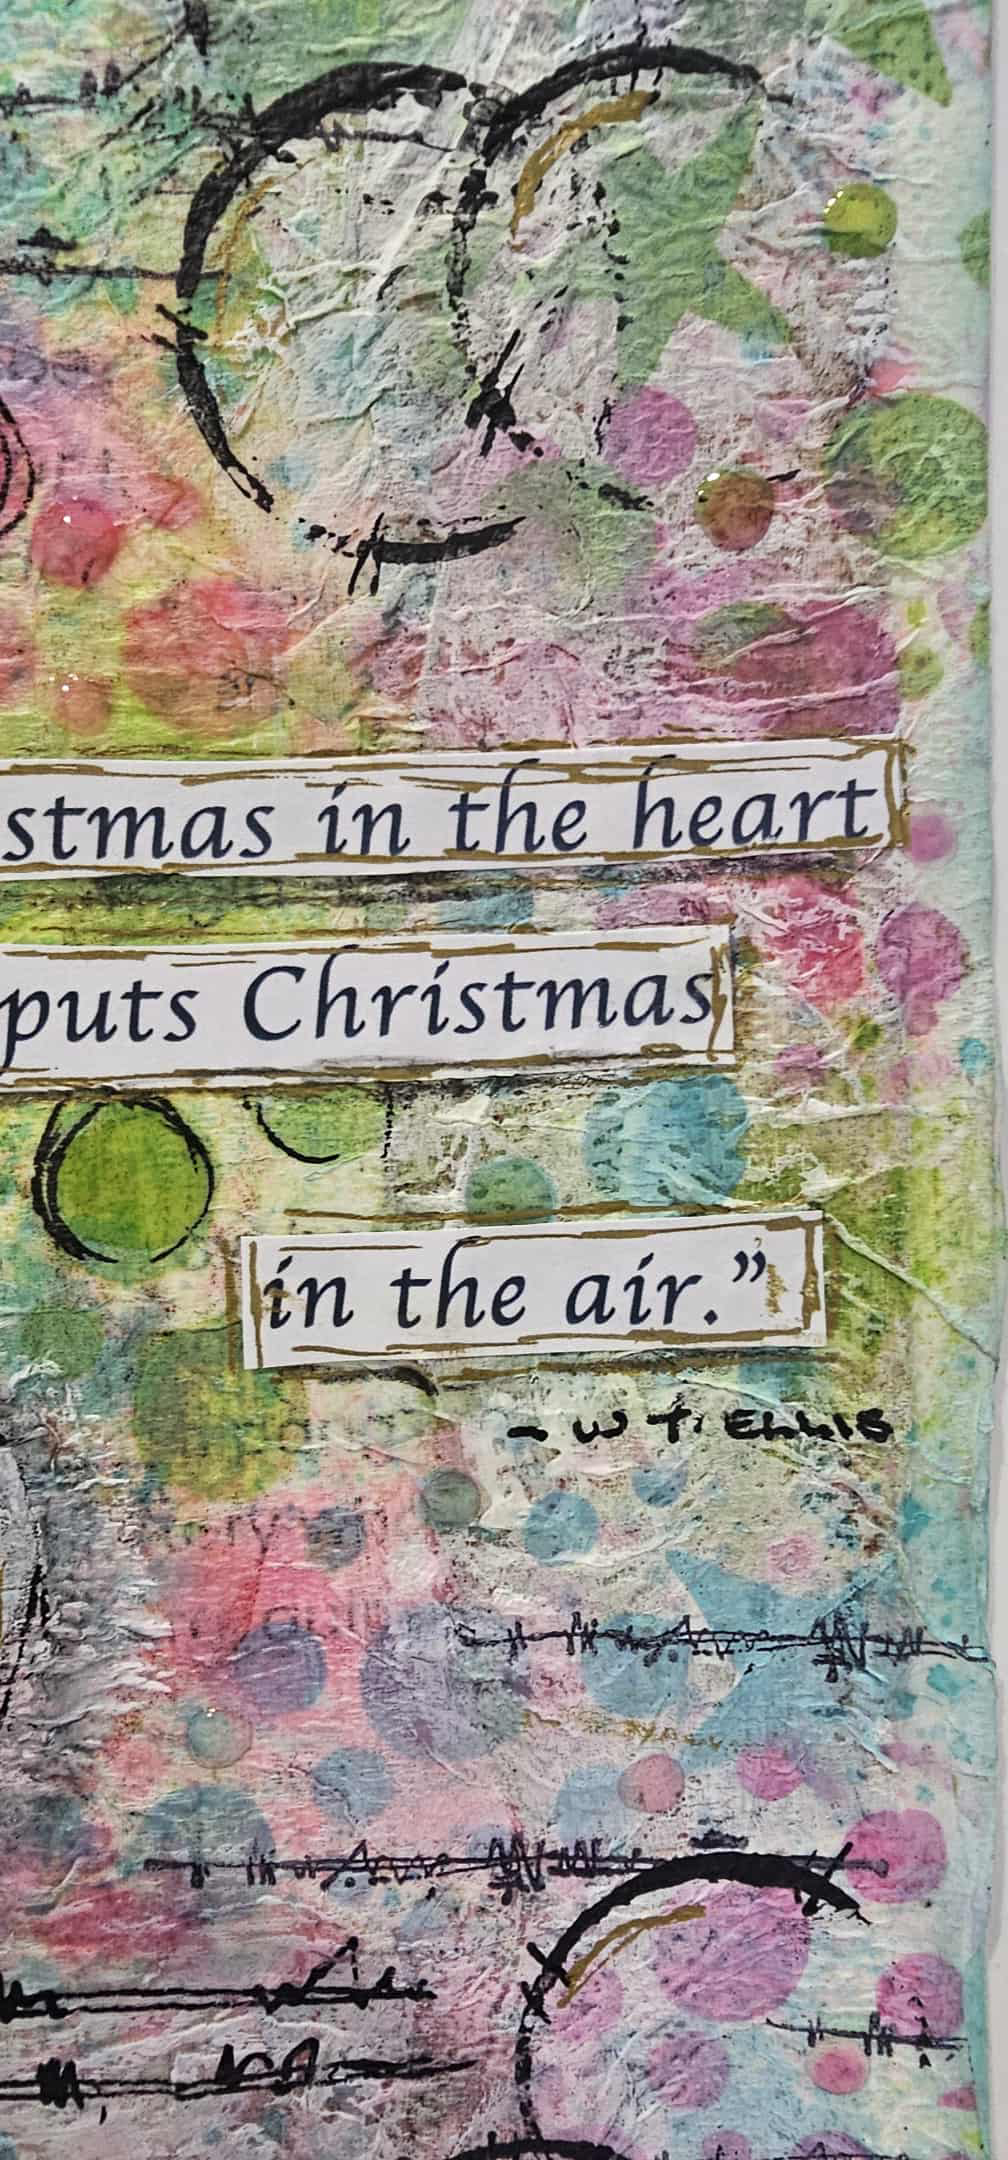 stmas in the heart
puts Christmas
in the air.”
- W T. ELLIS